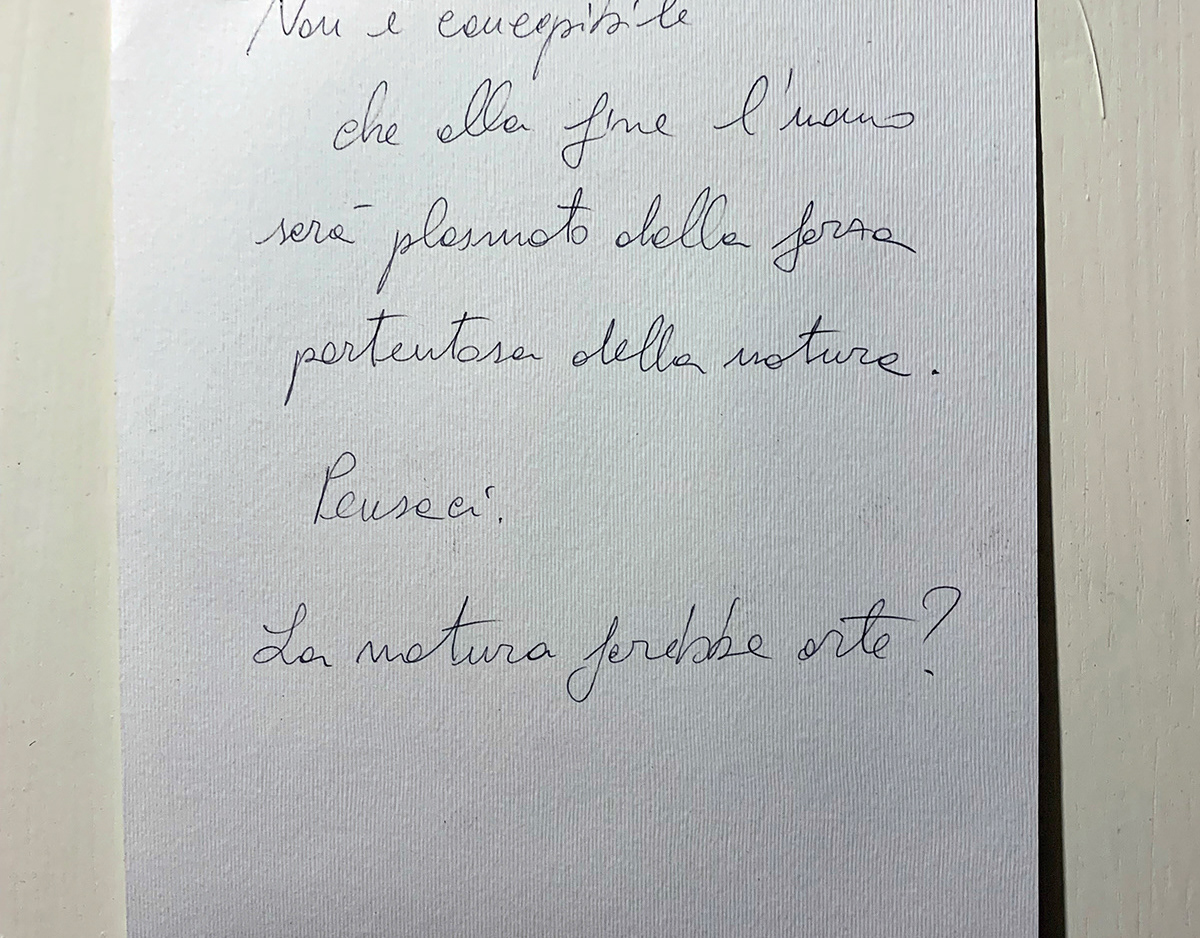 Non è concepibile
che alla fine l'uomo
sarà plasmato dalla forza
portentosa della natura.
Pensaci.
La natura farebbe arte?